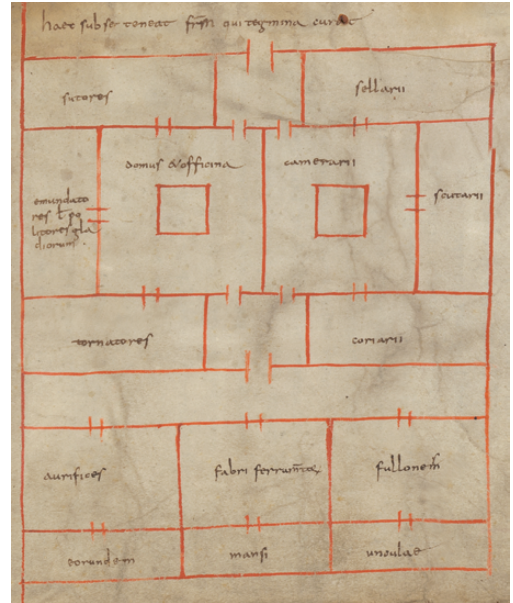 haec sub se teneat fr̄m qui tegmina curat
sutores
sellarii
domus & officina
camerarii
emundato
res ł po
litores gla
diorum
scutarii
tornatores
coriarii
aurifices
fabri ferram̄toꝝ
fullones
eorundem
mansi
unculae